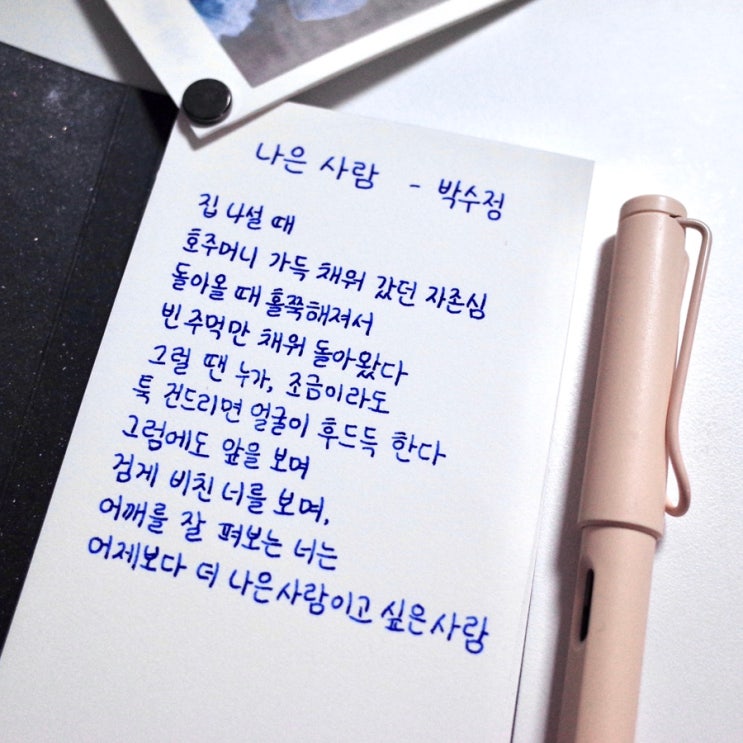 나은 사람 - 박수정
집 나설 때
호주머니 가득 채워 갔던 자존심
돌아올 때 홀쭉해져서
빈 주먹만 채워 돌아왔다
그럴 땐 누가, 조금이라도
툭 건드리면 얼굴이 후드득 한다
그럼에도 앞을 보며
검게 비친 너를 보며,
어깨를 잘 펴보는 너는
어제보다 더 나은사람이고 싶은사람